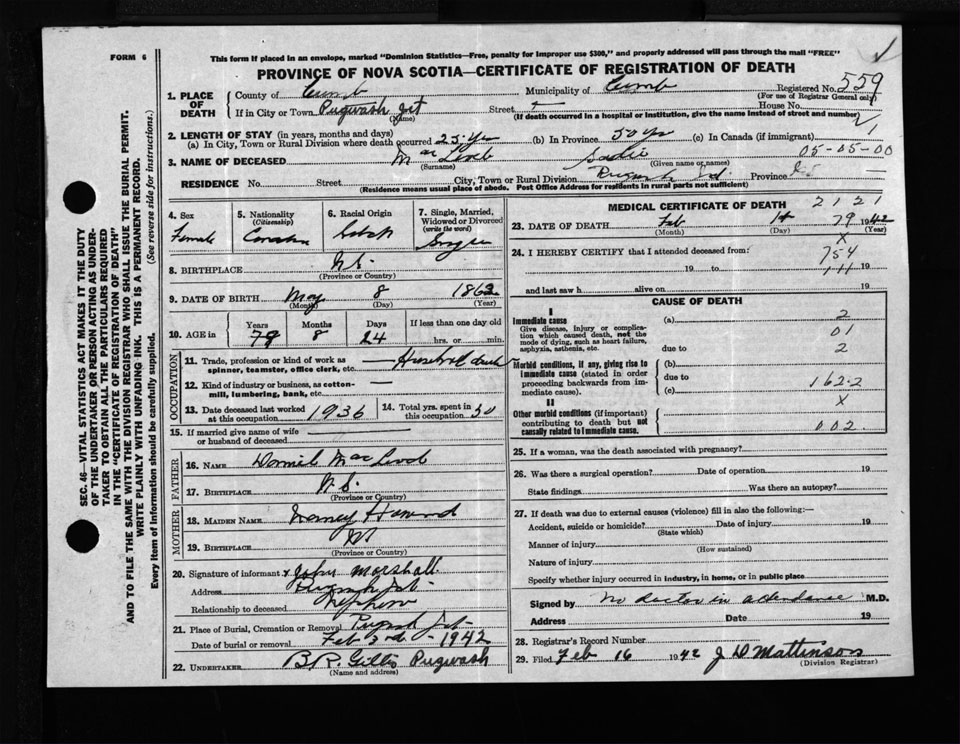 FORM 6
This form if placed in an envelope, marked "Dominion Statistics—Free, penalty for improper use $300," and properly addressed will pass through the mail "FREE"
PROVINCE OF NOVA SCOTIA—CERTIFICATE OF REGISTRATION OF DEATH
1. PLACE OF DEATH
County of Cumb Municipality of Cumb Registered No. 559
(For use of Registrar General only)
If in City or Town Pugwash Jct Street House No.
(Name) (If death occurred in a hospital or institution, give name instead of street and number)
2. LENGTH OF STAY (in years, months and days)
(a) In City, Town or Rural Division where death occurred 25 Yrs (b) In Province 50 Yrs (c) In Canada (if immigrant)
05-05-00
3. NAME OF DECEASED Mac Leod Sadie
(Surname) (Given name or names)
RESIDENCE No. Street City, Town or Rural Division Province
(Residence means usual place of abode. Post Office Address for residents in rural parts not sufficient)
4. Sex Female
5. Nationality (Citizenship)
6. Racial Origin Scotch
7. Single, Married, Widowed or Divorced (write the word) Single
8. BIRTHPLACE N.S.
(Province or Country)
9. DATE OF BIRTH May 8 1862
(Month) (Day) (Year)
10. AGE in Years Months Days If less than one day old
79 8 24 hrs. or min.
OCCUPATION
11. Trade, profession or kind of work as spinner, teamster, office clerk, etc.
12. Kind of industry or business, as cotton-mill, lumbering, bank, etc.
13. Date deceased last worked at this occupation 1936
14. Total yrs. spent in this occupation 50
15. If married give name of wife or husband of deceased
FATHER
16. NAME Mac Leod
17. BIRTHPLACE N.S.
(Province or Country)
MOTHER
18. MAIDEN NAME Nancy
19. BIRTHPLACE NS
(Province or Country)
20. Signature of informant x John Marshall
Address Pugwash Jct
Relationship to deceased Nephew
21. Place of Burial, Cremation or Removal Pugwash Jct
Date of burial or removal Feb 3rd - 1942
22. UNDERTAKER B.R. Gillis Pugwash
(Name and address)
MEDICAL CERTIFICATE OF DEATH 2121
23. DATE OF DEATH Feb 1st 79 1942
(Month) (Day) (Year)
X
24. I HEREBY CERTIFY that I attended deceased from:
754
19 to 19
and last saw h alive on 19
CAUSE OF DEATH
I
Immediate cause (a) 2
Give disease, injury or complication which caused death, not the mode of dying, such as heart failure, asphyxia, asthenia, etc.
01
due to 2
Morbid conditions, if any, giving rise to immediate cause (stated in order proceeding backwards from immediate cause).
(b)
due to 162.2
(c)
X
II
Other morbid conditions (if important) contributing to death but not causally related to immediate cause.
002
25. If a woman, was the death associated with pregnancy?
26. Was there a surgical operation? Date of operation 19
State findings Was there an autopsy?
27. If death was due to external causes (violence) fill in also the following:—
Accident, suicide or homicide? Date of injury 19
(State which)
Manner of injury
(How sustained)
Nature of injury
Specify whether injury occurred in industry, in home, or in public place
Signed by No doctor in attendance M.D.
Address Date 19
28. Registrar's Record Number
29. Filed Feb 16 1942 J D Mattinson
(Division Registrar)
SEC. 46—VITAL STATISTICS ACT MAKES IT THE DUTY
OF THE UNDERTAKER OR PERSON ACTING AS UNDER-
TAKER TO OBTAIN ALL THE PARTICULARS REQUIRED
IN THE "CERTIFICATE OF REGISTRATION OF DEATH"
AND TO FILE THE SAME WITH THE DIVISION REGISTRAR WHO SHALL ISSUE THE BURIAL PERMIT.
WRITE PLAINLY WITH UNFADING INK. THIS IS A PERMANENT RECORD.
Every item of Information should be carefully supplied. (See reverse side for instructions.)